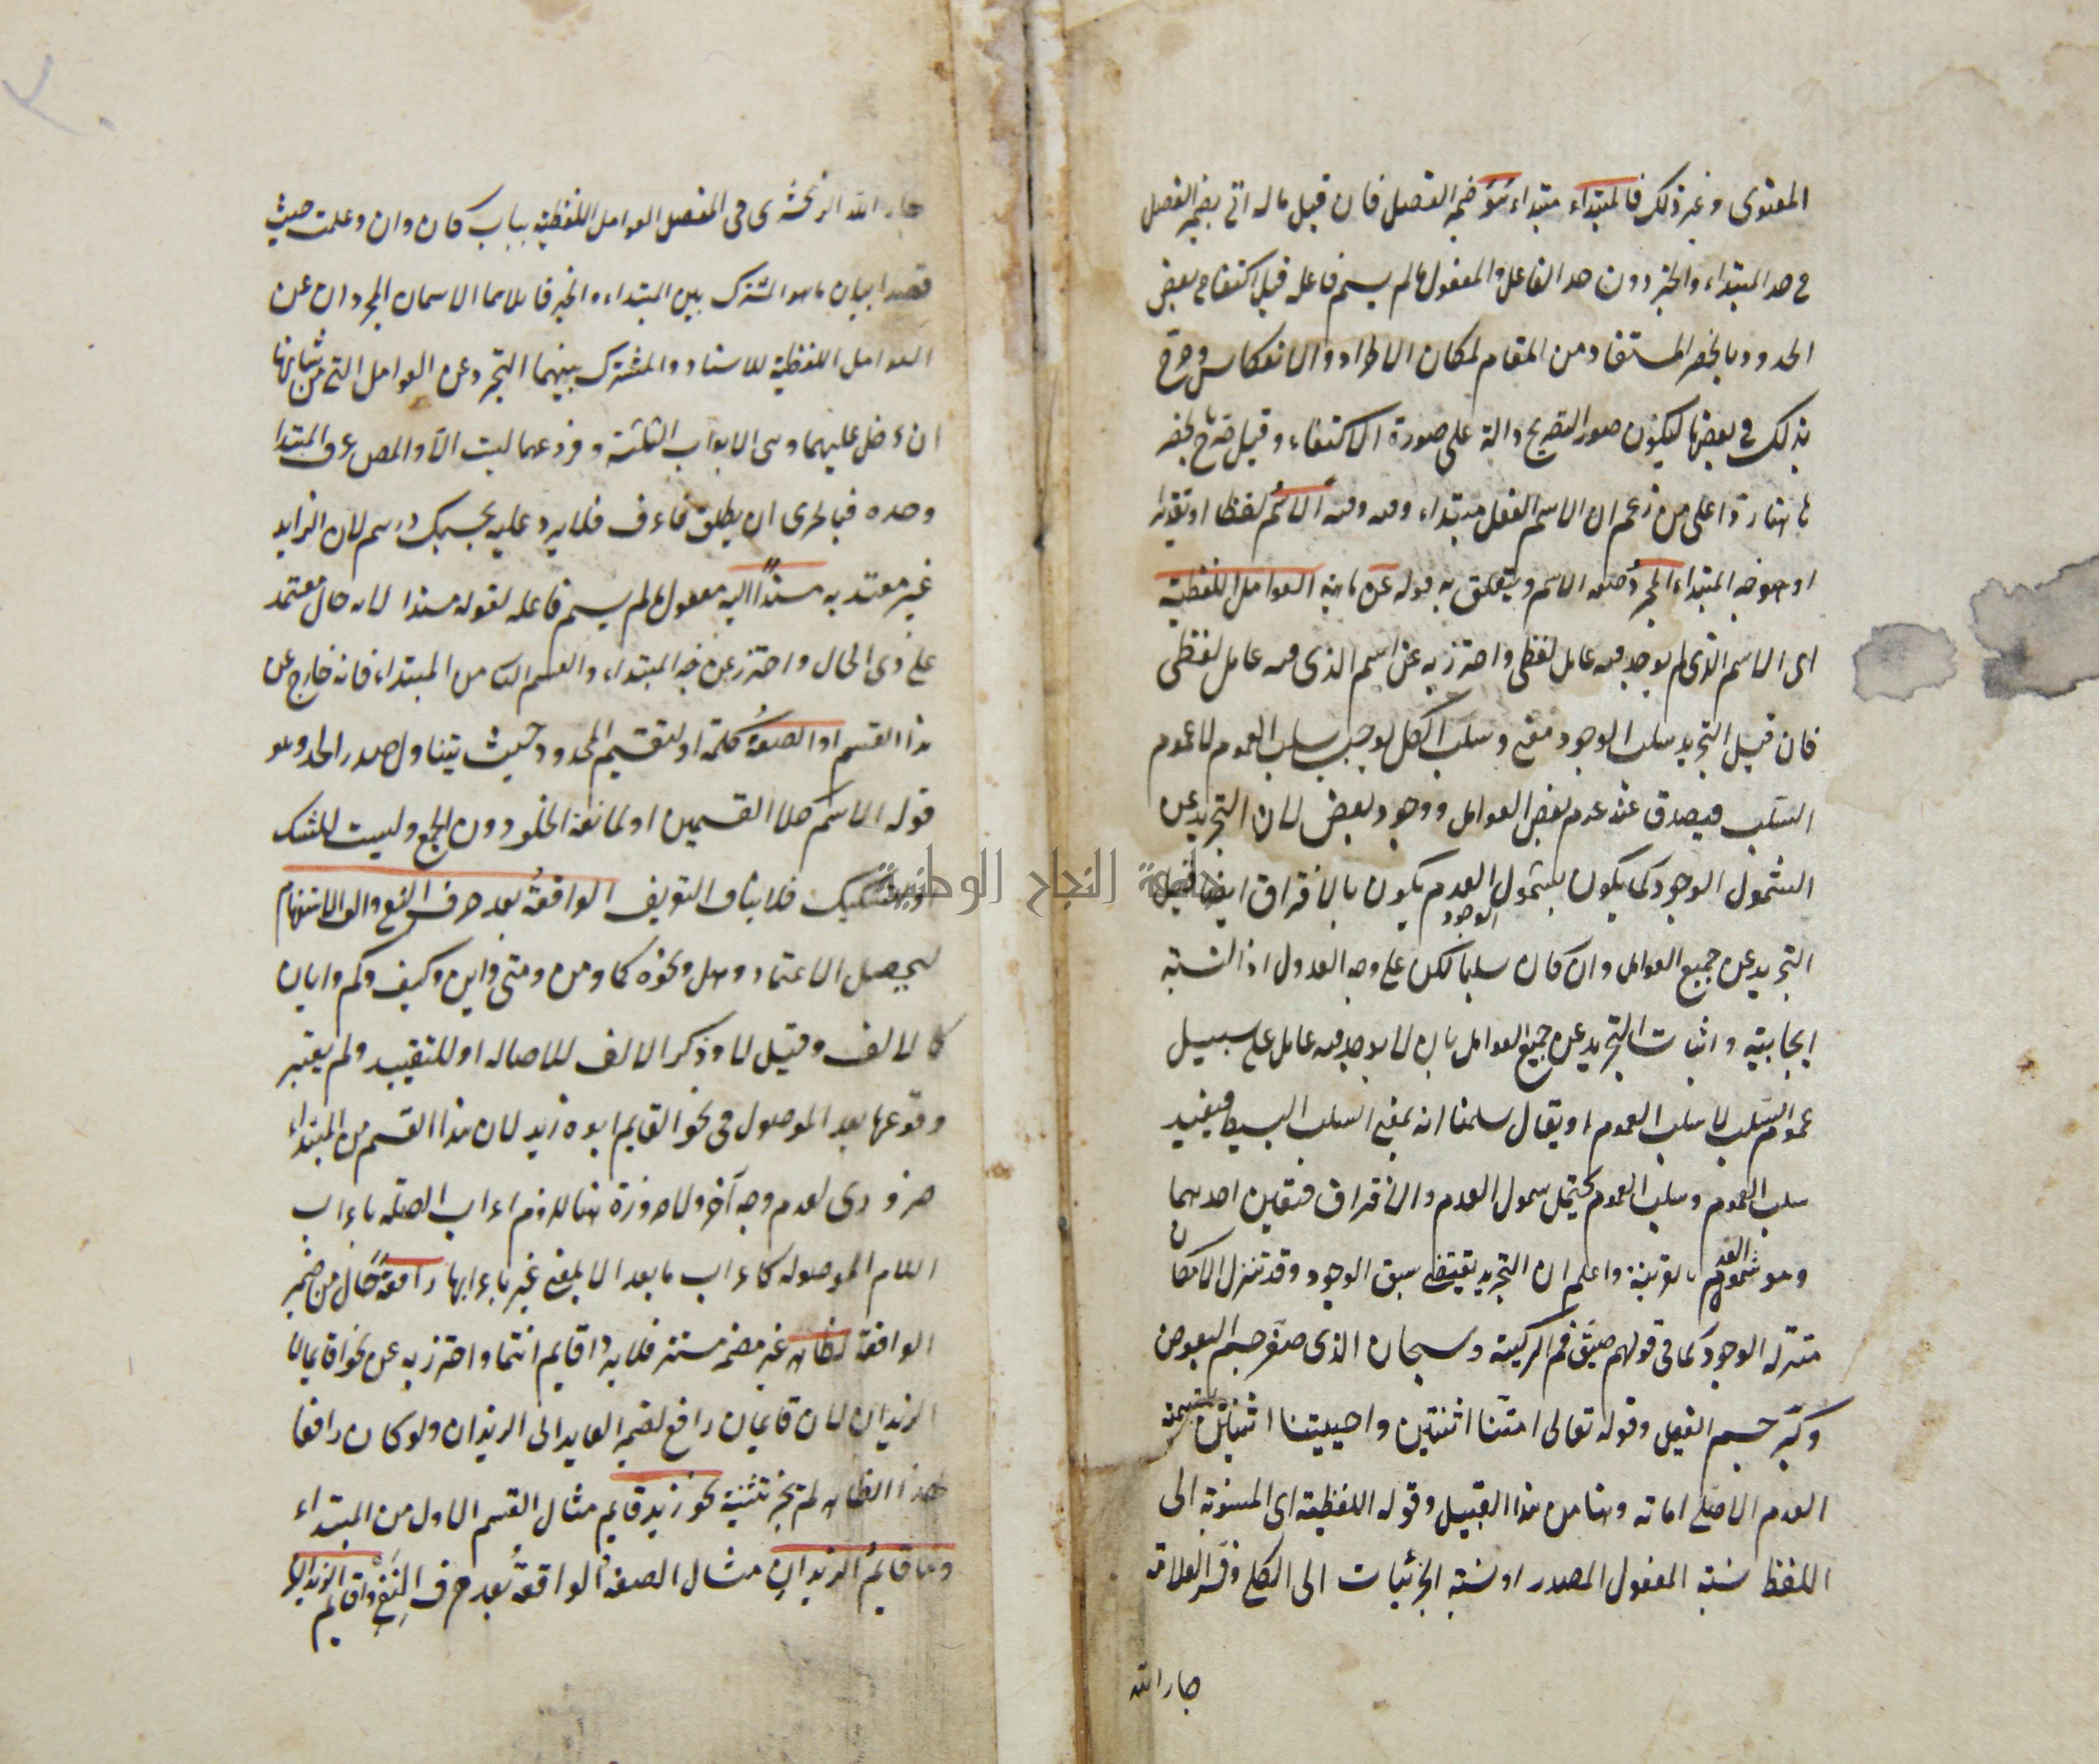 المعنوى وغير ذلك فالمبتداء مبتداء هُوَ ضمير الفصل فان قيل ما له اتى بضمير الفصل
فى حد المبتداء والخبر دون حد الفاعل والمفعول ما لم يسم فاعله قيل اكتفاء فى بعض
الحدود بالحصر المستفاد من المقام لمكان الاطراد والانعكاس وصرح
بذلك فى بعضها ليكون صور التصريح دالة على صورة الاكتفاء وقيل صرح بالحصر
ها هنا ردا على من زعم ان الاسم الفعل مبتداء الاسم لفظا او تقديرا
او هو خبر المبتداء المجرد صفه الاسم ويتعلق به قوله عن العوامل اللفظية
اى الاسم الذى لم يوجد فيه عامل لفظى واحترز به عن اسم الذى فيه عامل لفظى
فان قيل التجريد سلب الوجود معنى وسلب الكل يوجب سلب العموم لا عموم
السلب فيصدق عند عدم بعض العوامل ووجود بعض لان التجريد عن
الشمول الوجود كما يكون بشمول العدم يكون بالافتراق ايضا قيل
الوجود
التجريد عن جميع العوامل وان كان سلبا لكن على وجه العدول اذ النسبة
ايجابية واثبات التجريد عن جميع العوامل بان لا يوجد فيه عامل على سبيل
عموم السلب لا سلب العموم او يقال سلمنا انه بمعنى السلب البسيط فيفيد
سلب العموم وسلب العموم يحتمل شمول العدم والافتراق فتعين احدهما
وهو شمول العدم بالقرينة واعلم ان التجريد يقتضى سبق الوجود وقد تنزل الامكان
منزلة الوجود كما فى قولهم ضيق فم الركية وسبحان الذى صغر جسم البعوض
وكبر جسم الفيل وقوله تعالى امتنا اثنتين واحييتنا اثنتين بتسمية
العدم الاصلى اماتة وهنا من هذا القبيل وقوله اللفظية اى المنسوبة الى
اللفظ نسبة المفعول المصدر او نسبة الجزئيات الى الكلى وفسر العلامة
جار الله
جار الله الزمخشرى فى المفصل العوامل اللفظية بباب كان وان وعلمت حيث
قصد ابيان ما هو المشترك بين المبتداء والخبر قائلا هما الاسمان المجردان عن
العوامل اللفظية للاسناد والمشترك بينهما التجرد عن العوامل التى من شانها
ان تدخل عليهما وهى الابواب الثلثة المص عرف المبتدا
وحده فبالحرى ان يطلق فلا يرد عليه بحسبك درهم لان الزايد
غير معتد به مسندًا اليه مفعول ما لم يسم فاعله لقوله مسندا لانه حال معتمد
على ذى الحال واحترز عن خبر المبتداء والقسم الثانى من المبتداء فانه خارج عن
هذا القسم او الصفة كلمة او لتقسيم المحدود حيث يتناول صدر الحد وهو
قوله الاسم كلا القسمين او لمانعة الخلو دون الجمع وليست للشك
والتشكيك فلا ينافى التعريف الواقعة بعد حرف النفى والف الاستفهام
ليحصل الاعتماد وهل ونحوه كما ومن ومتى واين وكيف وكم وايان
كالالف وقيل لا وذكر الالف للاصالة او للتقييد ولم يعتبر
وقوعها بعد الموصول فى نحو القايم ابوه زيد لان هذا القسم من المبتداء
ضرورى لعدم وجه آخر ولا ضرورة هنا للزوم اعراب الصلة باعراب
اللام الموصولة كاعراب ما بعد الا بمعنى غير باعرابها رافعة حال من ضمير
الواقعة لظاهر غير مضمر مستتر فلا يرد اقايم انتما واحترز به عن نحو اقايمان
الزيدان لان قايمان رافع لضمير العايد الى الزيدان ولو كان رافعا
لهذا الظاهر لم يجز تثنيته نحو زيد قايم مثال القسم الاول من المبتداء
وما قايمٌ الزيدانِ مثال الصفة الواقعة بعد حرف النفى واقايم الزيدان
جامعة النجاح الوطنية